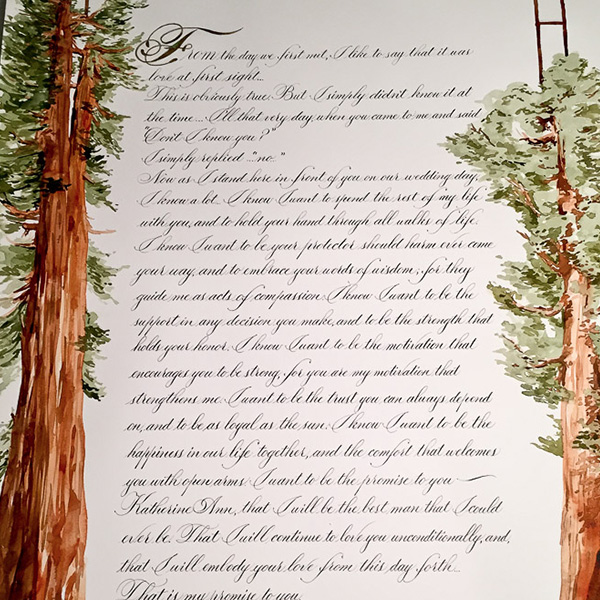 From the day we first met, I like to say that it was
love at first sight...
This is obviously true. But I simply didn't know it at
the time... All that very day when you came to me and said
"Don't I know you?"
I simply replied "...no..."
Now as I stand here in front of you on our wedding day,
I know a lot. I know I want to spend the rest of my life
with you, and to hold your hand through all walks of life.
I know I want to be your protector should harm ever come
your way, and to embrace your words of wisdom, for they
guide me as acts of compassion. I know I want to be the
support in any decision you make, and to be the strength that
holds your honor. I know I want to be the motivation that
encourages you to be strong, for you are my motivation that
strengthens me. I want to be the trust you can always depend
on, and to be as loyal as the sun. I know I want to be the
happiness in our life together, and the comfort that welcomes
you with open arms. I want to be the promise to you
Katherine Ann, that I will be the best man that I could
ever be. That I will continue to love you unconditionally, and,
that I will embody your love from this day forth...
That is my promise to you.